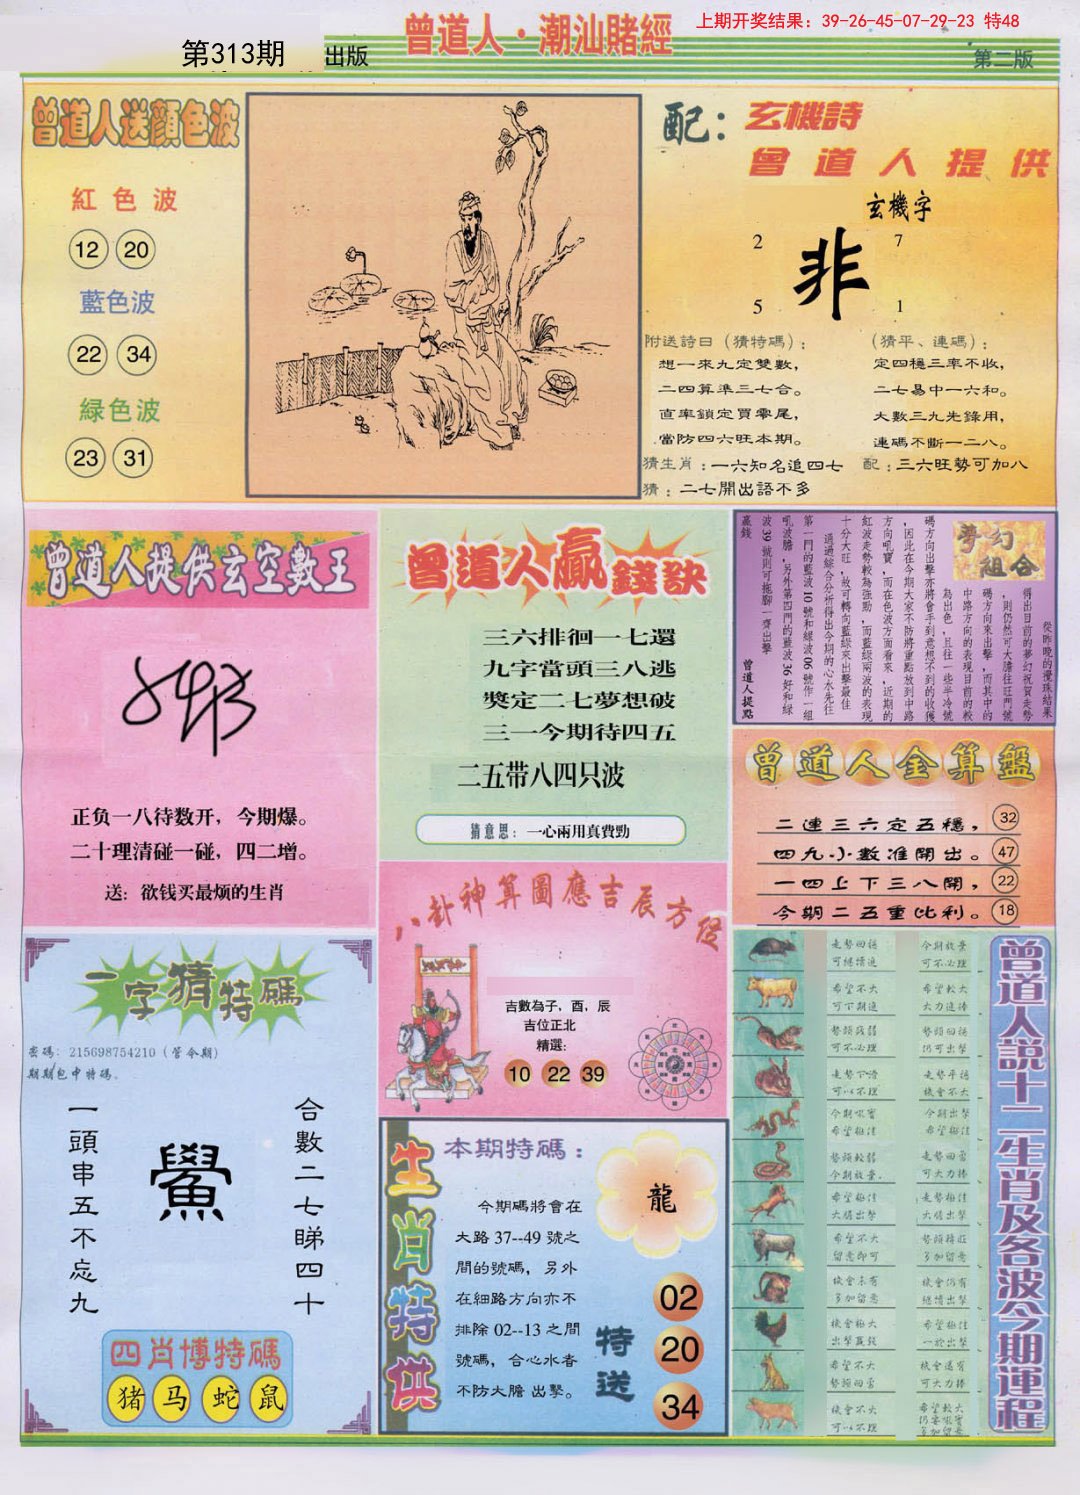 上期开奖结果：39-26-45-07-29-23 特48
曾道人·潮汕賭經
第313期
出版
第二版
曾道人送顏色波
紅色波
12 20
藍色波
22 34
緑色波
23 31
配：玄機詩
曾道人提供
玄機字
2 7
非
5 1
附送詩曰（猜特碼）；
想一來九定雙數，
二四算準三七合。
直率鎖定買零尾，
當防四六旺本期。
（猜平、連碼）；
定四穩三率不收，
二七易中一六和。
大數三九先錄用，
連碼不斷一二八。
猜生肖：一六知名追四七
配：三六旺勢可加八
猜：二七開出語不多
曾道人提供玄空數王
正负一八待数开，今期爆。
二十理清碰一碰，四二增。
送：欲钱买最烦的生肖
曾道人贏錢訣
三六排徊一七還
九字當頭三八逃
獎定二七夢想破
三一今期待四五
二五带八四只波
猜意思：一心兩用真費勁
夢幻組合
從昨晚的攪珠結果
得出目前的夢幻祝賀走勢
，則仍然可大膽往旺門號
碼方向來出擊，而其中的
中路方向的表現目前的較
為出色，且往一些半冷號
碼方向出擊亦將會手到意想不到的收獲
，因此在今期大家不防將重點放到中路
方向吼寶，而在色波方面看來，近期的
紅波走勢較為強勁，而藍緑兩波的表現
十分大旺，故可轉向藍緑來出擊最佳
通過綜合分析得出今期的心水先往
第一門的藍波10號和綠波06號作一組
吼波膽，另外第四門的藍波36好和緑
波39號則可拖腳一齊出擊
贏錢
曾道人提點
曾道人金算盤
二連三六定五穩，32
四九小數准開出。47
一四上下三八開，22
今期二五重比利。18
八卦神算圖應吉辰方位
吉數為子，酉，辰
吉位正北
精選：
10 22 39
一字猜特碼
密碼：215698754210（管令期）
期期包中特碼。
合數二七睇四十
鱟
一頭串五不忘九
四肖博特碼
猪 马 蛇 鼠
生肖特供
本期特碼：
今期碼將會在
大路37--49號之
間的號碼，另外
在細路方向亦不
排除02--13之間
號碼，合心水者
不防大膽出擊。
龍
特送
02
20
34
曾道人說十二生肖及各波今期運程
走勢回穩
可繼續追
今期放棄
可不必理
希望不大
可下期追
希望較大
大力追捧
勢頭疲弱
可不必理
勢頭回穩
仍可出擊
走勢下滑
可以不理
走勢平穩
機會不大
今期吼寶
希望極佳
今期出擊
希望極佳
勢頭較弱
今期放棄。
走勢回當
可大力捧
希望極佳
大膽出擊
走勢極佳
大膽出擊
希望不大
留意即可
勢頭轉旺
多加留意
機會未有
多加留意
機會仍有
繼續出擊
機會極大
出擊贏錢
希望極佳
一於出擊
希望不大
勢頭回當
機會還有
可大力捧
機會不大
可以不理
希望較大
仍要吼實
多加留意